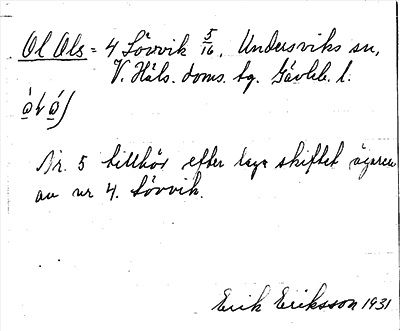 Ol Ols = 4 Lövvik 5/16, Undersviks sn,
V. Häls. doms. bg. Gävleb. l.
Nr. 5 tillhör efter laga skiftet ägaren
av nr 4. Lövvik.
Erik Eriksson 1931